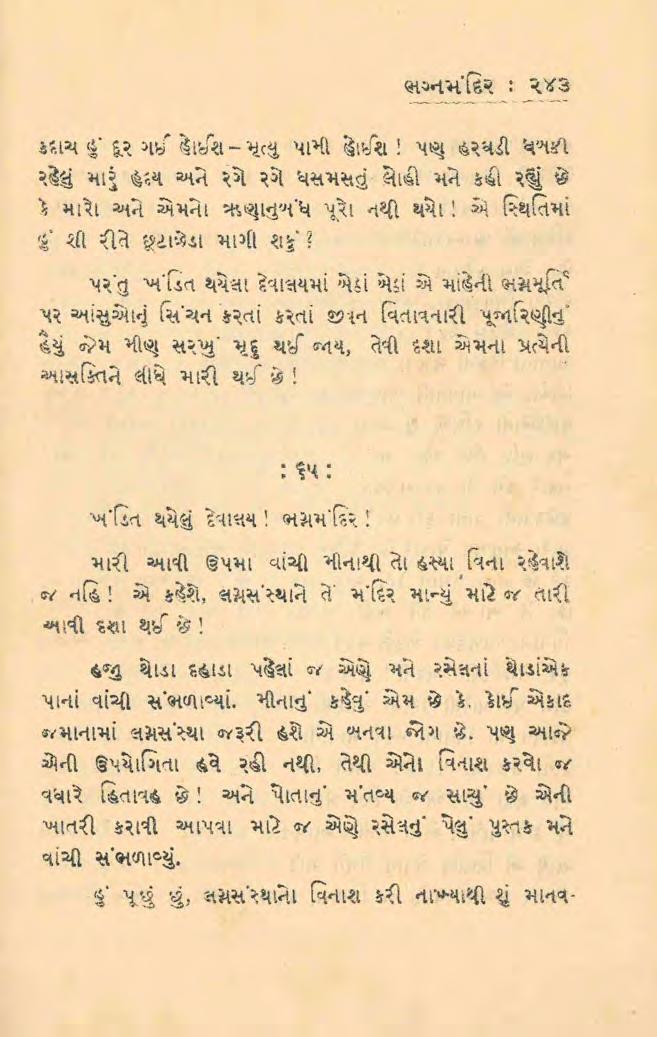 ભગ્નમંદિર : ૨૪૩
કદાચ હું દૂર ગઈ હોઈશ – મૃત્યુ પામી હોઈશ ! પણ હરઘડી ધબકી
રહેલું મારું હૃદય અને રગે રગે ધસમસતું લોહી મને કહી રહ્યું છે
કે મારો અને એમનો ઋણાનુબંધ પૂરો નથી થયો ! એ સ્થિતિમાં
હું શી રીતે છૂટાછેડા માગી શકું ?
પરંતુ ખંડિત થયેલા દેવાલયમાં બેઠાં બેઠાં એ માંહેની ભગ્નમૂર્તિ
પર આંસુઓનું સિંચન કરતાં કરતાં જીવન વિતાવનારી પૂજારિણીનું
હૈયું જેમ મીણ સરખું મૃદુ થઈ જાય, તેવી દશા એમના પ્રત્યેની
આસક્તિને લીધે મારી થઈ છે !
: ૬૫ :
ખંડિત થયેલું દેવાલય ! ભગ્નમંદિર !
મારી આવી ઉપમા વાંચી મીનાથી તો હસ્યા વિના રહેવાશે
જ નહિ ! એ કહેશે, લગ્નસંસ્થાને તેં મંદિર માન્યું માટે જ તારી
આવી દશા થઈ છે !
હજુ થોડા દહાડા પહેલાં જ એણે મને રસેલનાં થોડાંએક
પાનાં વાંચી સંભળાવ્યાં. મીનાનું કહેવું એમ છે કે, કોઈ એકાદ
જમાનામાં લગ્નસંસ્થા જરૂરી હશે એ બનવા જોગ છે. પણ આજે
એની ઉપયોગિતા હવે રહી નથી, તેથી એનો વિનાશ કરવો જ
વધારે હિતાવહ છે ! અને પોતાનું મંતવ્ય જ સાચું છે એની
ખાતરી કરાવી આપવા માટે જ એણે રસેલનું પેલું પુસ્તક મને
વાંચી સંભળાવ્યું.
હું પૂછું છું, લગ્નસંસ્થાનો વિનાશ કરી નાખ્યાથી શું માનવ-